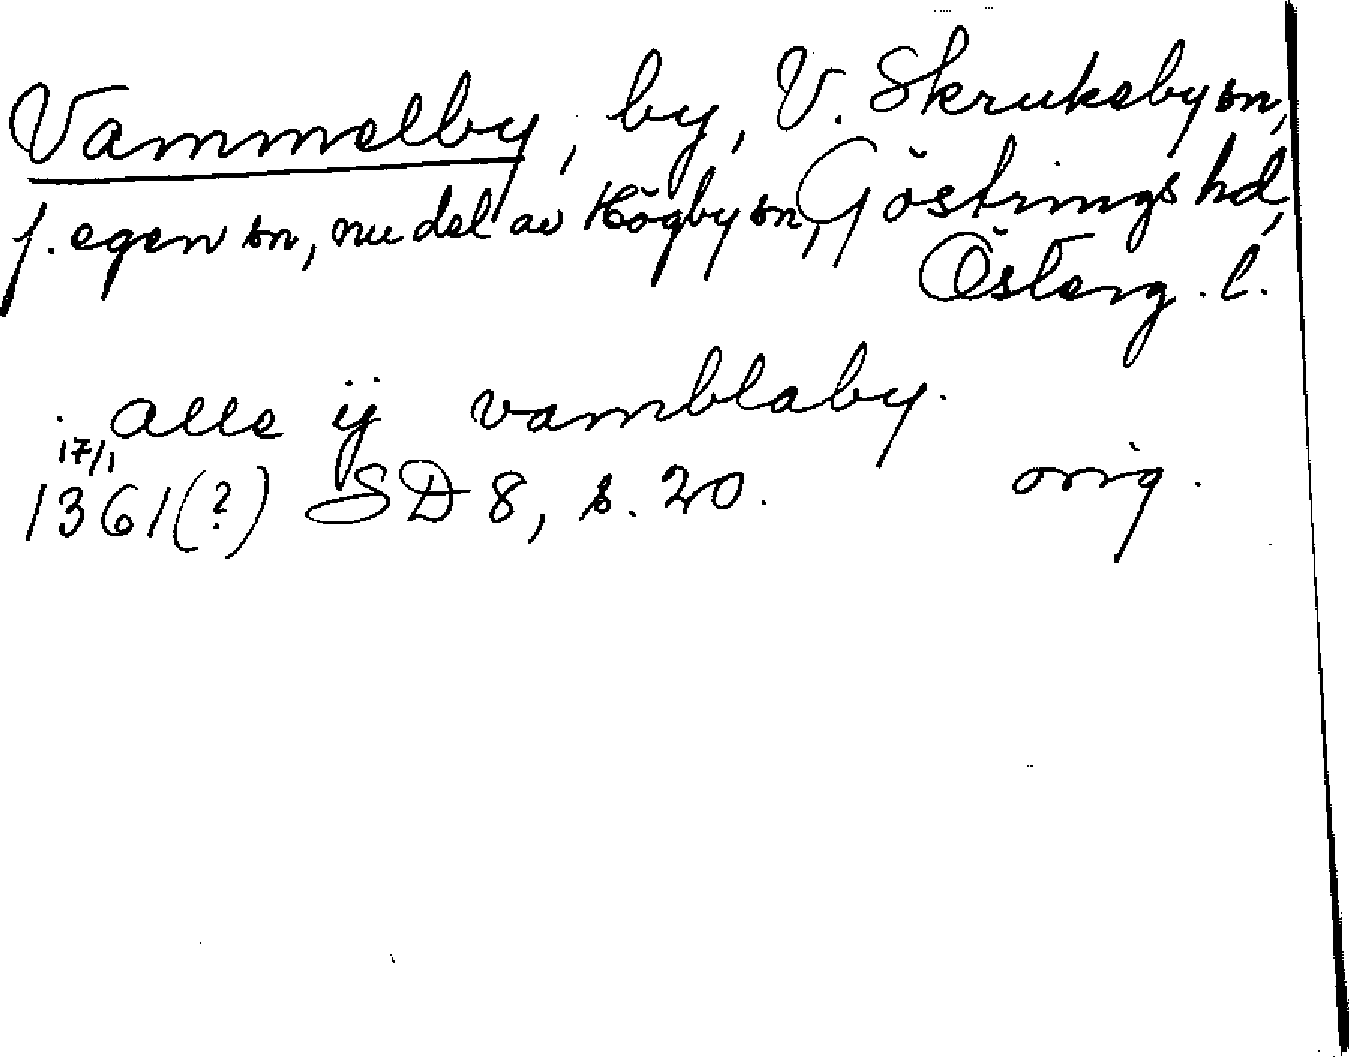 Vammelby, by, V. Skrukeby sn,
f. egen sn, nu del av Högby sn, Göstrings hd,
Österg. l.
. alle ij vamblaby.
17/1
1361(?) SD 8, s. 20. orig.